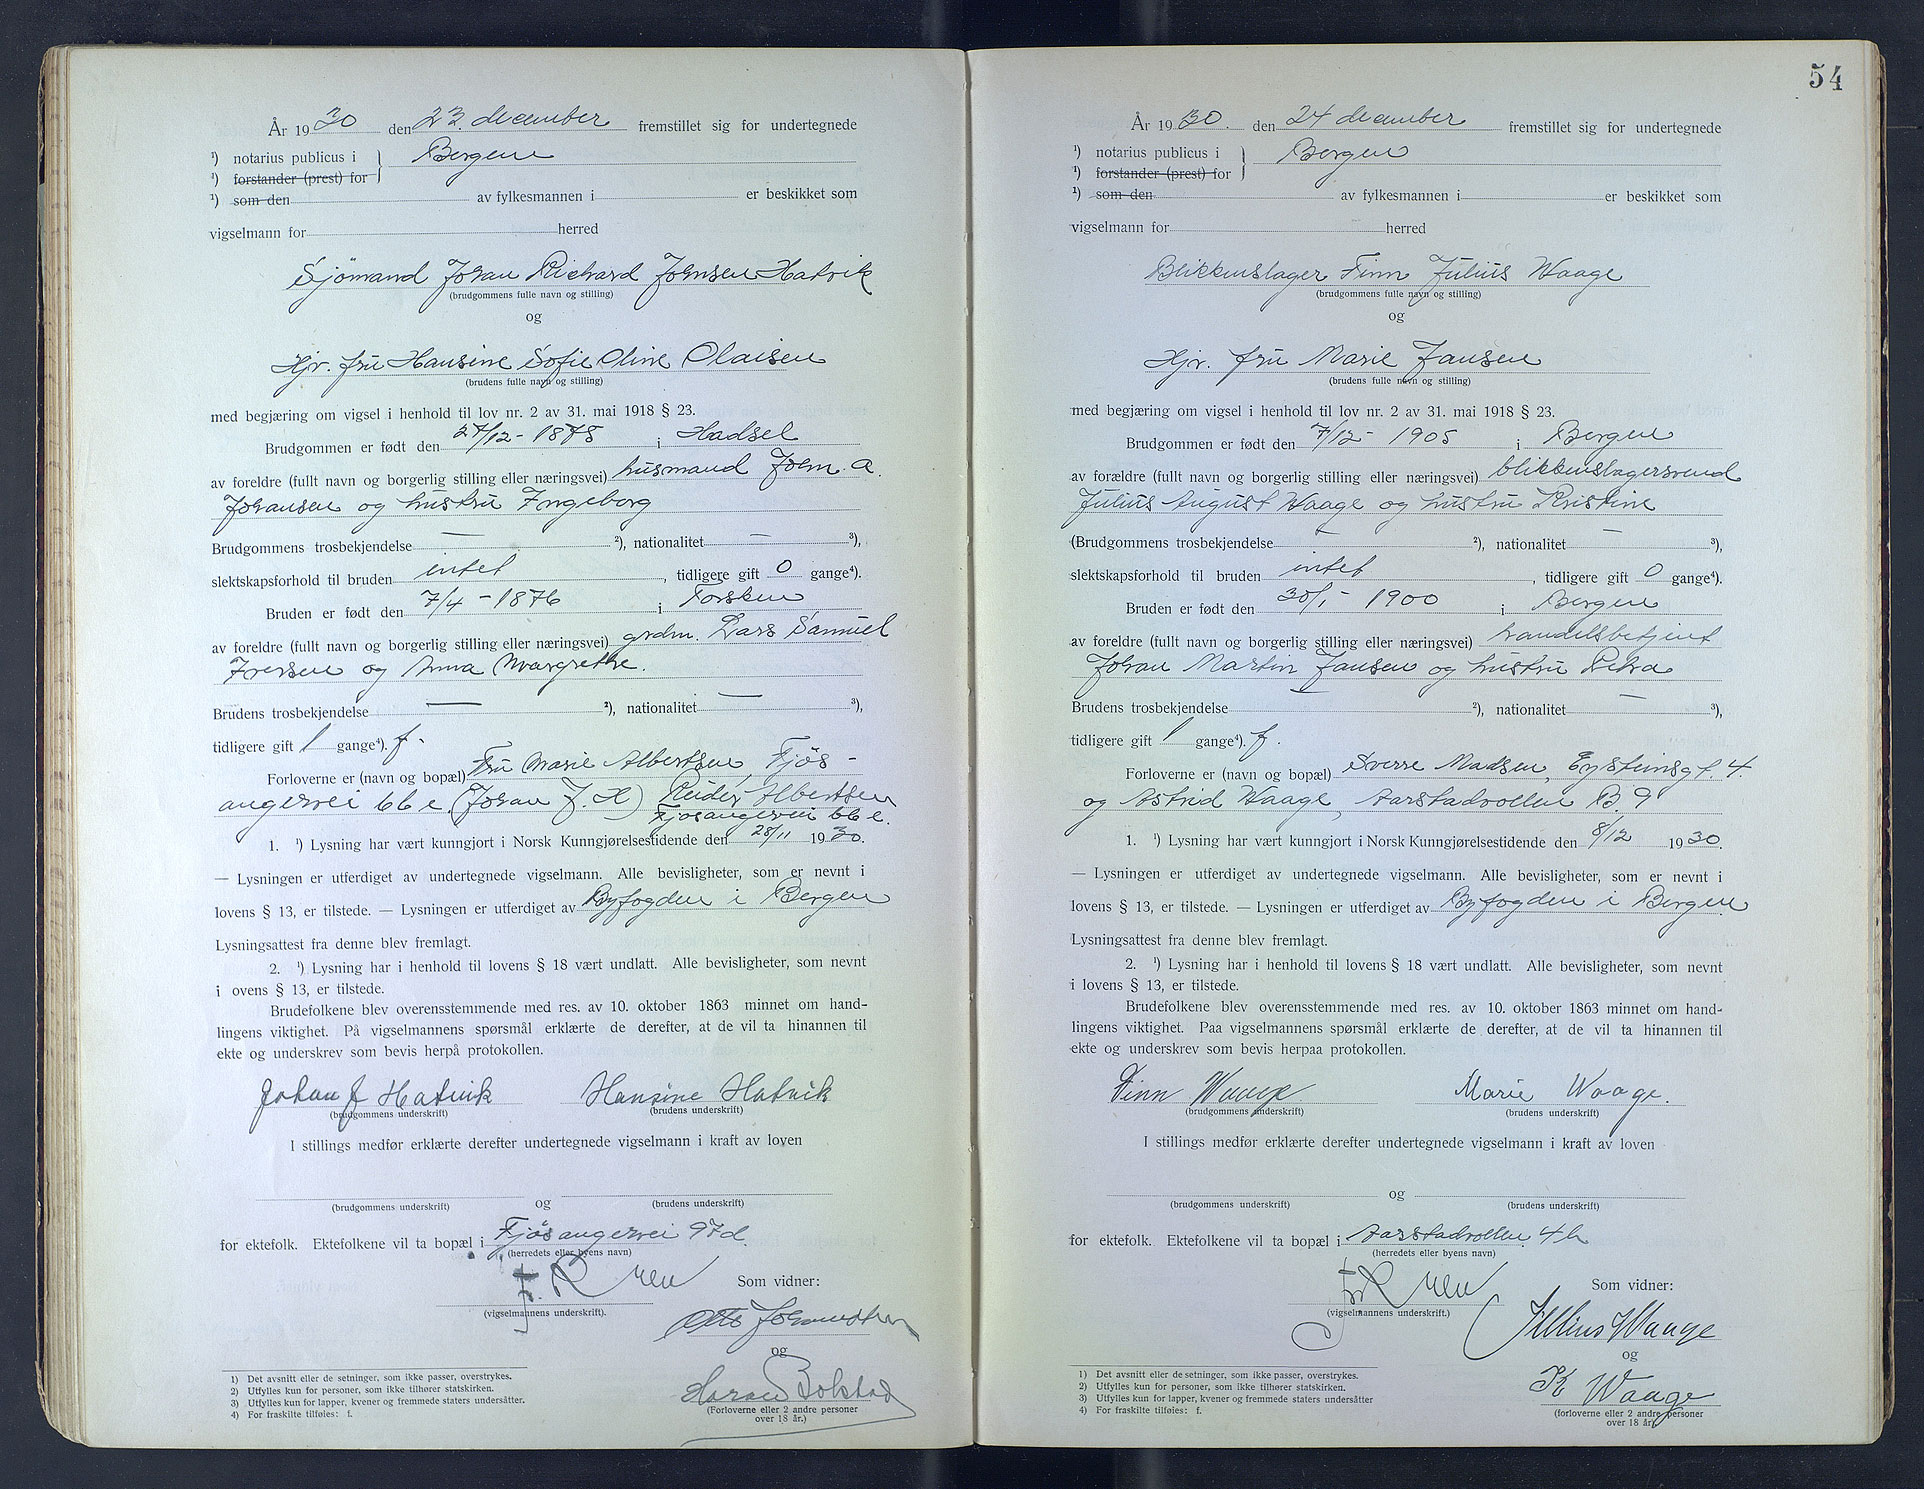 År 1930 den 23. december fremstillet sig for undertegnede
¹) notarius publicus i } Bergen
¹) forstander (prest) for
¹) som den av fylkesmannen i er beskikket som
vigselmann for herred
Sjömand Johan Richard Johnsen Hatvik
(brudgommens fulle navn og stilling)
og
Hjv. fru Hansine Sofie Oline Olaisen
(brudens fulle navn og stilling)
med begjæring om vigsel i henhold til lov nr. 2 av 31. mai 1918 § 23.
Brudgommen er født den 27/12-1878 i Hadsel
av foreldre (fullt navn og borgerlig stilling eller næringsvei) husmand John. A.
Johansen og hustru Ingeborg
Brudgommens trosbekjendelse — ²), nationalitet — ³),
slektskapsforhold til bruden intet, tidligere gift 0 gange⁴).
Bruden er født den 7/4-1876 i Torsken
av foreldre (fullt navn og borgerlig stilling eller næringsvei) grdm. Lars Samuel
Iversen og Anna Margrethe.
Brudens trosbekjendelse — ²), nationalitet — ³),
tidligere gift 1 gange⁴). f.
Forloverne er (navn og bopæl) Fru Marie Albertsen, Fjös-
angervei 66 e (Johan J. H) Reidar Albertsen
Fjosangervei 66 e.
1. ¹) Lysning har vært kunngjort i Norsk Kunngjørelsestidende den 28/11 1930.
— Lysningen er utferdiget av undertegnede vigselmann. Alle bevisligheter, som er nevnt i
lovens § 13, er tilstede. — Lysningen er utferdiget av Byfogden i Bergen
Lysningsattest fra denne blev fremlagt.
2. ¹) Lysning har i henhold til lovens § 18 vært undlatt. Alle bevisligheter, som nevnt
i ovens § 13, er tilstede.
Brudefolkene blev overensstemmende med res. av 10. oktober 1863 minnet om hand-
lingens viktighet. På vigselmannens spørsmål erklærte de derefter, at de vil ta hinannen til
ekte og underskrev som bevis herpå protokollen.
Johan J Hatvik Hansine Hatvik
(brudgommens underskrift) (brudens underskrift)
I stillings medfør erklærte derefter undertegnede vigselmann i kraft av loven
og
(brudgommens underskrift) (brudens underskrift)
for ektefolk. Ektefolkene vil ta bopæl i Fjösangervei 97d.
(herredets eller byens navn)
Som vidner:
(vigselmannens underskrift).
og
(Forloverne eller 2 andre personer
over 18 år.)
1) Det avsnitt eller de setninger, som ikke passer, overstrykes.
2) Utfylles kun for personer, som ikke tilhører statskirken.
3) Utfylles kun for lapper, kvener og fremmede staters undersåtter.
4) For fraskilte tilføies: f.
54
År 1930. den 24 december fremstillet sig for undertegnede
¹) notarius publicus i } Bergen
¹) forstander (prest) for
¹) som den av fylkesmannen i er beskikket som
vigselmann for herred
Blikkenslager Finn Julius Waage
(brudgommens fulle navn og stilling)
og
Hjv. fru Marie Jansen
(brudens fulle navn og stilling)
med begjæring om vigsel i henhold til lov nr. 2 av 31. mai 1918 § 23.
Brudgommen er født den 7/12-1905 i Bergen
av forældre (fullt navn og borgerlig stilling eller næringsvei) blikkenslagersvend
Julius August Waage og hustru Kristine
(Brudgommens trosbekjendelse — ²), nationalitet — ³),
slektskapsforhold til bruden intet, tidligere gift 0 gange⁴).
Bruden er født den 30/1-1900 i Bergen
av foreldre (fullt navn og borgerlig stilling eller næringsvei) handelsbetjent
Johan Martin Jansen og hustru Petra
Brudens trosbekjendelse — ²), nationalitet — ³),
tidligere gift 1 gange⁴). f.
Forloverne er (navn og bopæl) Sverre Madsen, Eysteinsgt. 4.
og Astrid Waage, Aarstadvollen B. 9
1. ¹) Lysning har vært kunngjort i Norsk Kunngjørelsestidende den 8/12 1930.
— Lysningen er utferdiget av undertegnede vigselmann. Alle bevisligheter, som er nevnt i
lovens § 13, er tilstede. — Lysningen er utferdiget av Byfogden i Bergen
Lysningsattest fra denne blev fremlagt.
2. ¹) Lysning har i henhold til lovens § 18 vært undlatt. Alle bevisligheter, som nevnt
i lovens § 13, er tilstede.
Brudefolkene blev overensstemmende med res. av 10. oktober 1863 minnet om hand-
lingens viktighet. Paa vigselmannens spørsmål erklærte de derefter, at de vil ta hinannen til
ekte og underskrev som bevis herpaa protokollen.
Finn Waage Marie Waage.
(brudgommens underskrift) (brudens underskrift)
I stillings medfør erklærte derefter undertegnede vigselmann i kraft av loven
og
(brudgommens underskrift) (brudens underskrift)
for ektefolk. Ektefolkene vil ta bopæl i Aarstadvollen 4b
(herredets eller byens navn)
Som vidner:
(vigselmannens underskrift.)
Julius Waage
og
K Waage
(forloverne eller 2 andre personer
over 18 år)
1) Det avsnitt eller de setninger, som ikke passer, overstrykes.
2) Utfylles kun for personer, som ikke tilhører statskirken.
3) Utfylles kun for lapper, kvener og fremmede staters undersåtter
4) For fraskilte tilføies: f.